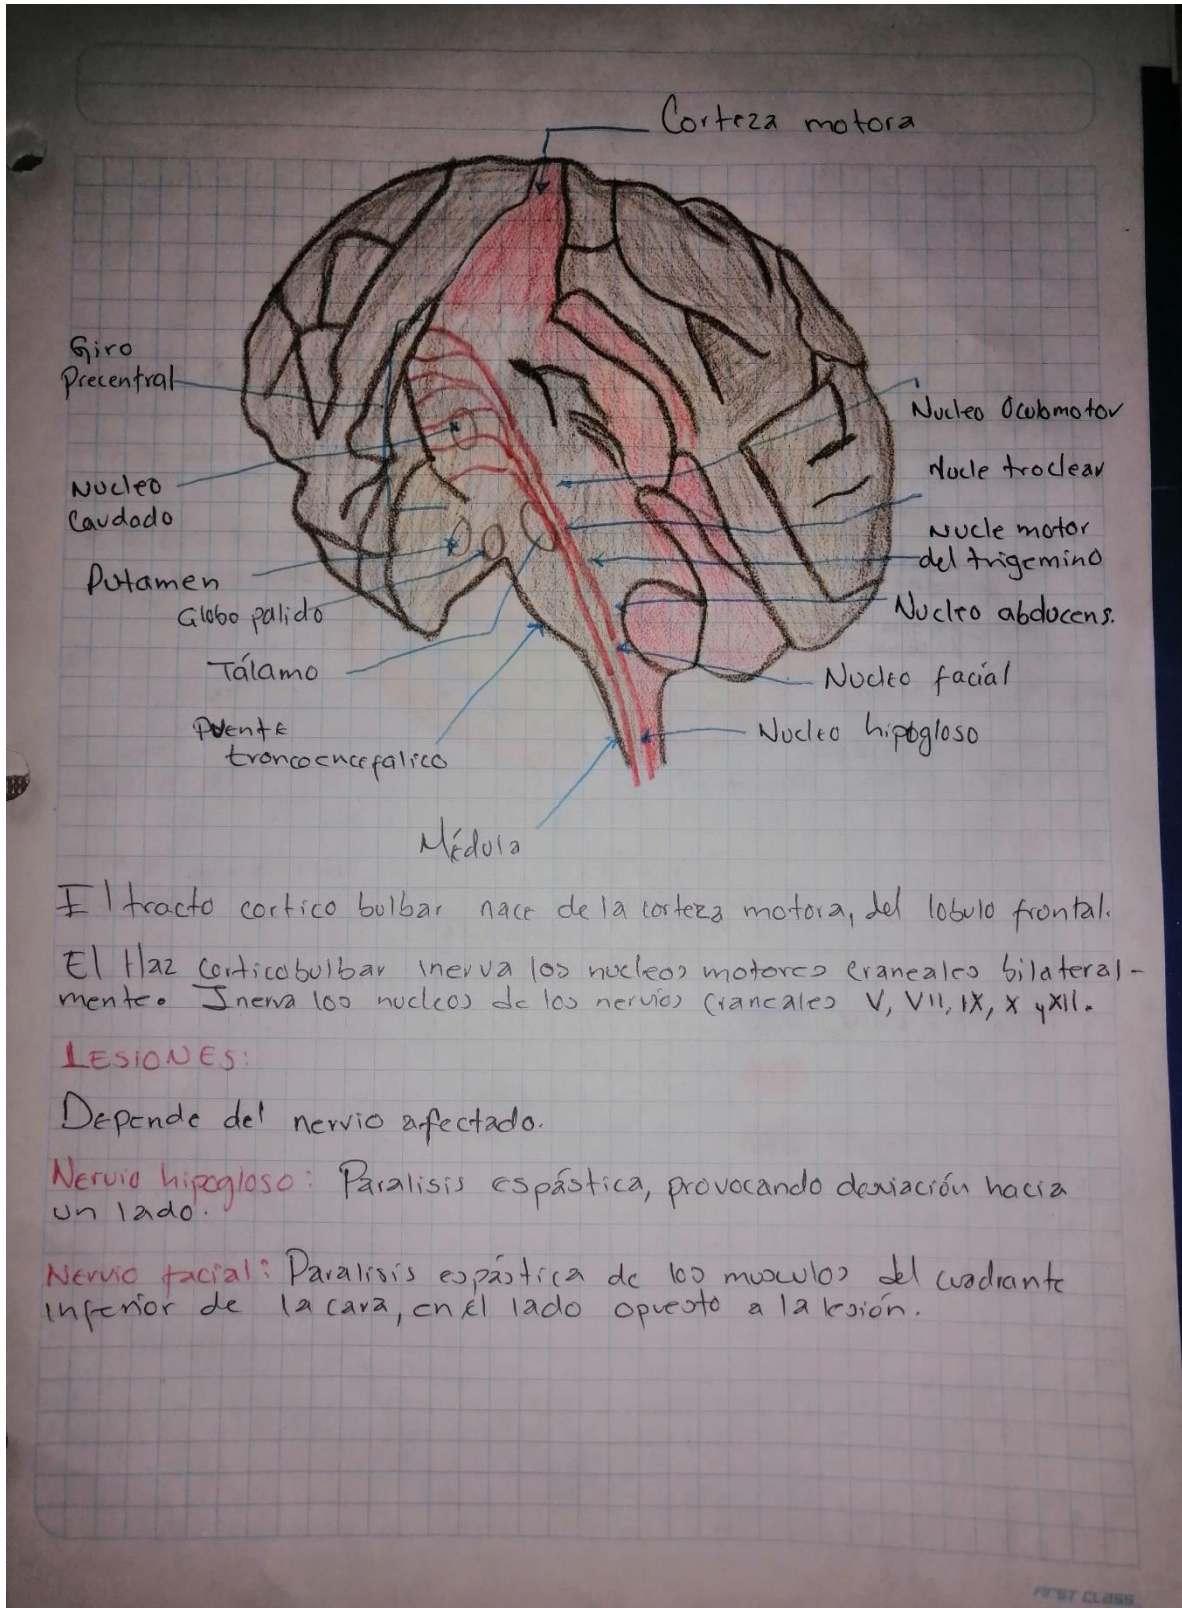 Corteza motora
Giro
Precentral
Nucleo Oculomotor
Nucleo
Caudado
Nucle troclear
Nucle motor
del trigemino
Putamen
Globo palido
Nucleo abducens.
Tálamo
Nucleo facial
Puente
troncoencefalico
Nucleo hipogloso
Médula
El tracto cortico bulbar nace de la corteza motora, del lobulo frontal.
El Haz corticobulbar inerva los nucleos motores craneales bilateral-
mente. Inerva los nucleos de los nervios craneales V, VII, IX, X y XII.
LESIONES:
Depende del nervio afectado.
Nervio hipogloso: Paralisis espástica, provocando desviación hacia
un lado.
Nervio facial: Paralisis espástica de los musculos del cuadrante
inferior de la cara, en el lado opuesto a la lesión.
FIRST CLASS